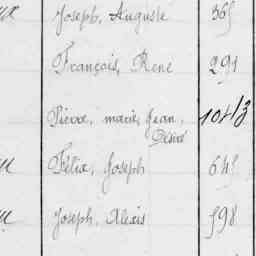 Joseph, Auguste 365
François, René 291
Pierre, marie, Jean, 1043
Désiré
Félix, Joseph 648
Joseph, Alexis 598